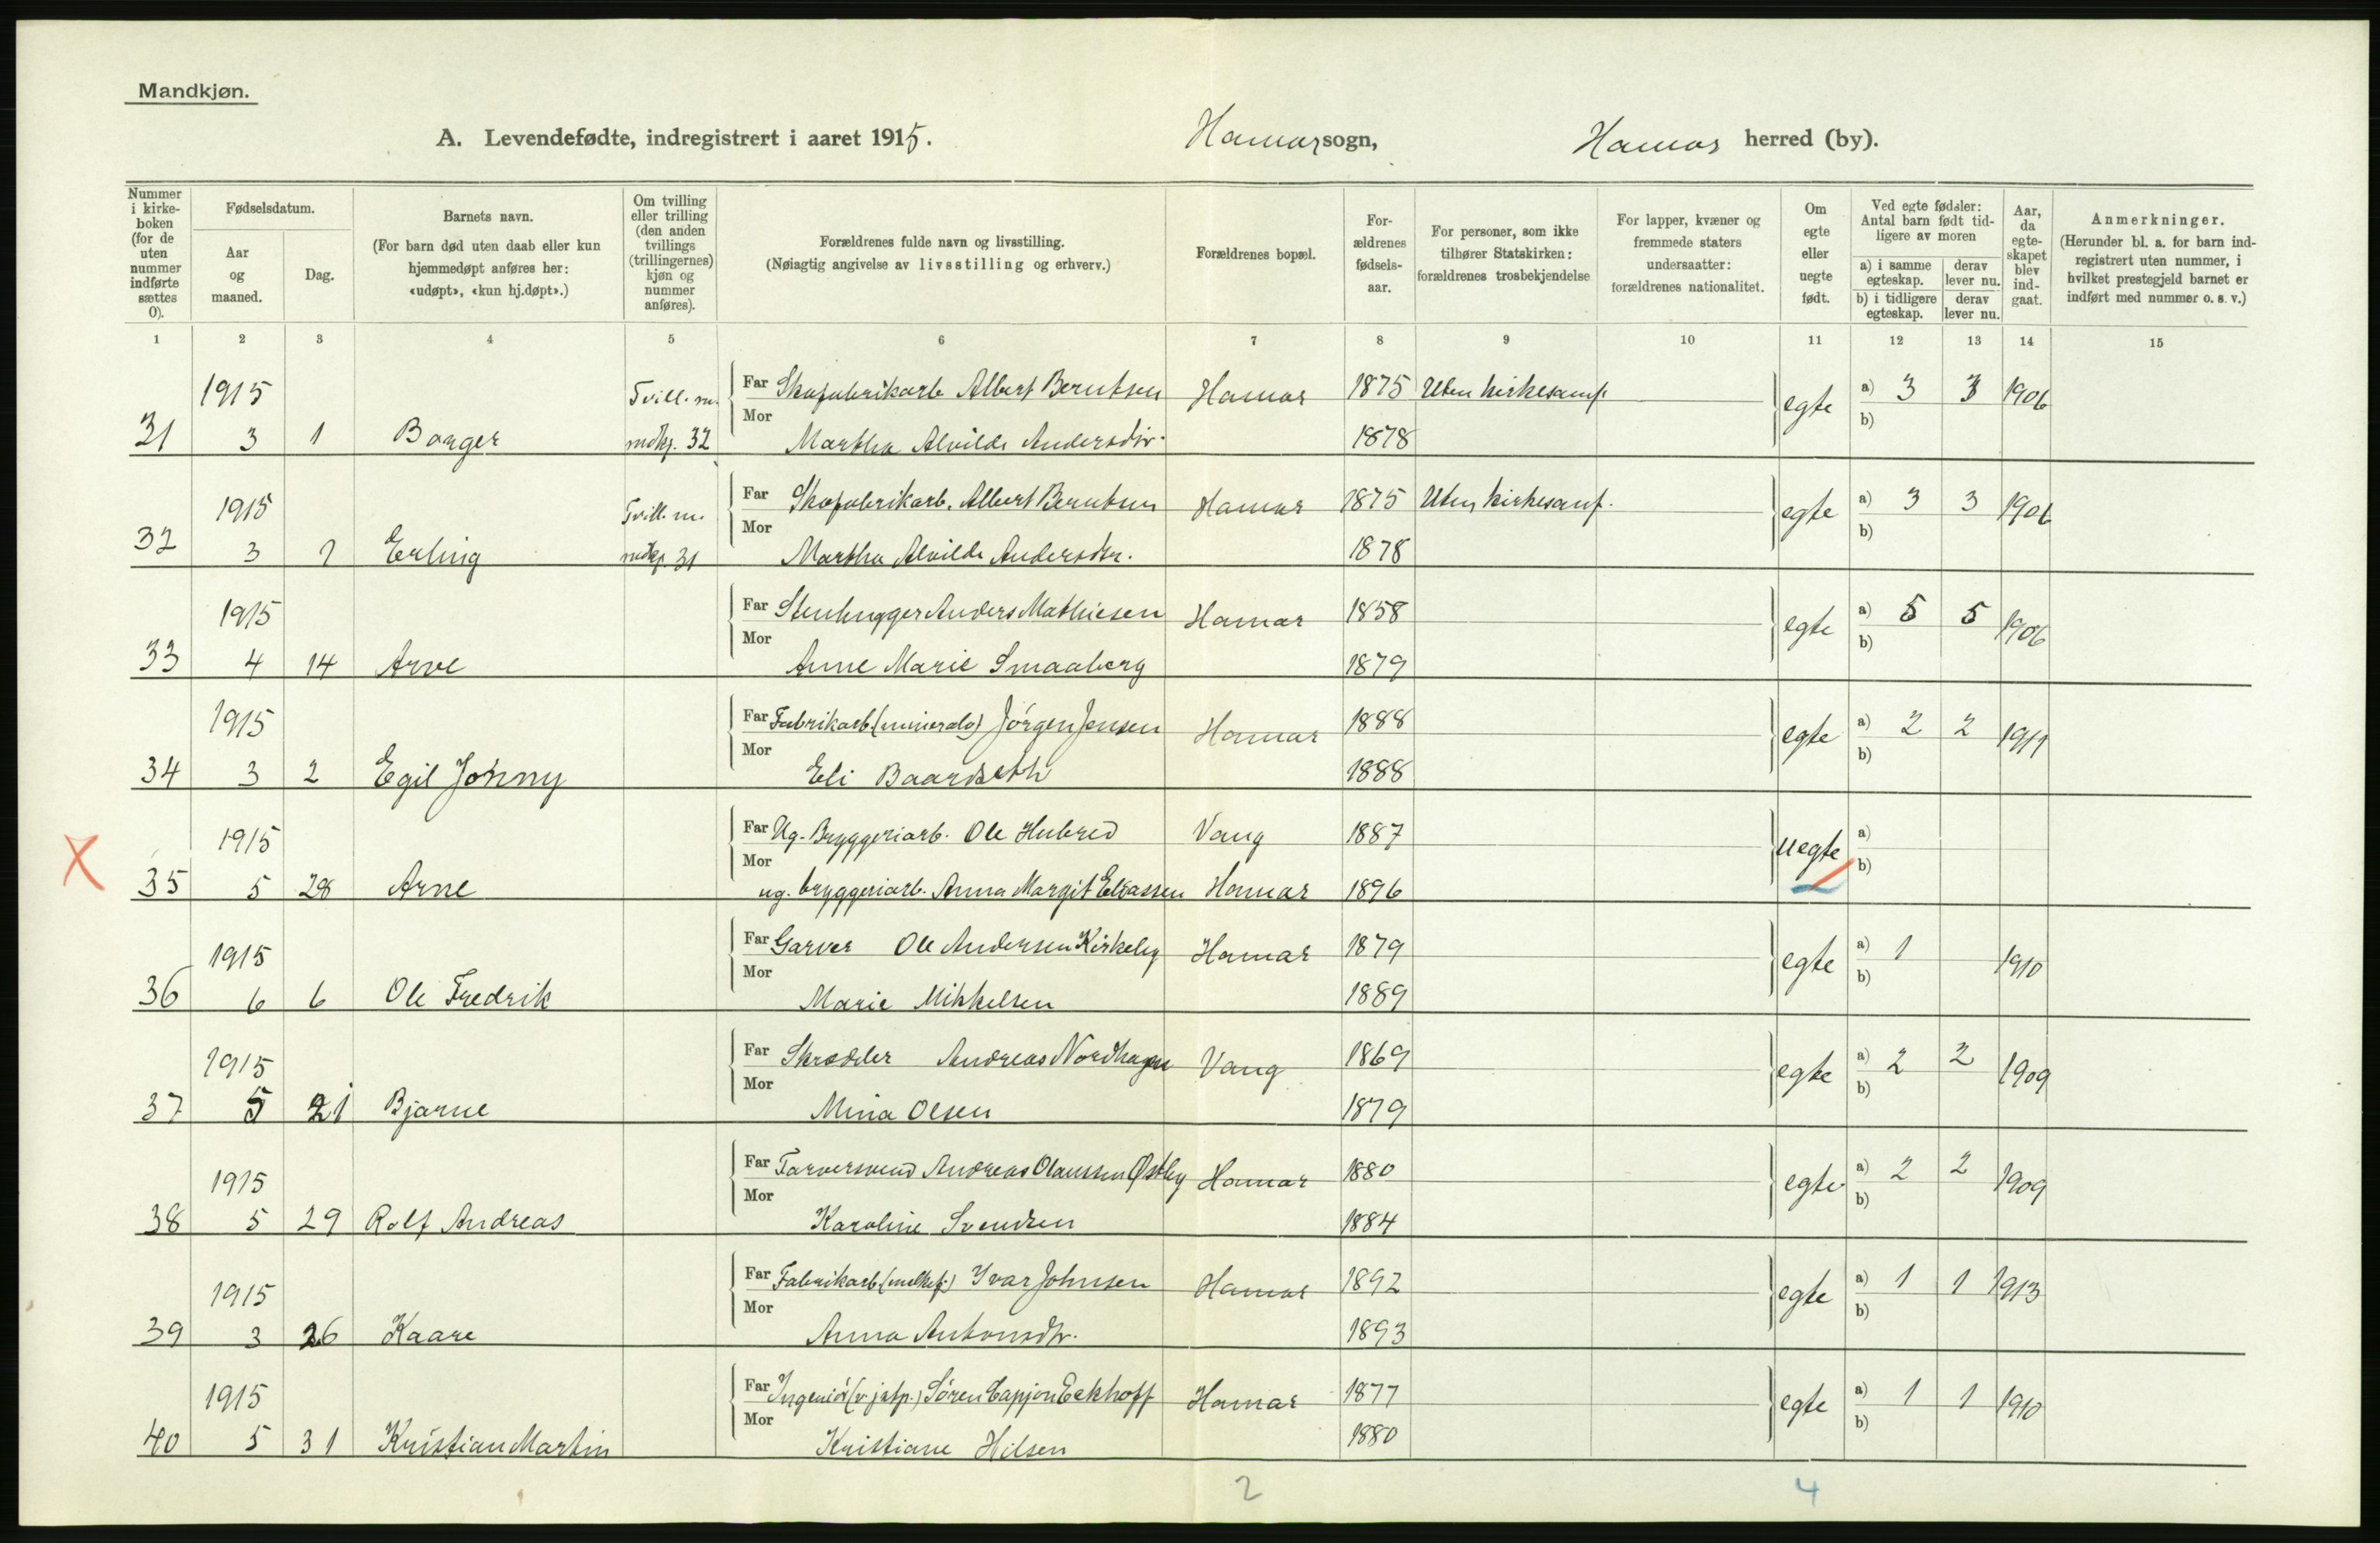 Mandkjøn.
A. Levendefødte, indregistrert i aaret 1915. Hamar sogn, Hamar herred (by).
Nummer i kirke-boken (for de uten nummer indførte sættes 0).
Fødselsdatum.
Aar og maaned.
Dag.
Barnets navn.
(For barn død uten daab eller kun hjemmedøpt anføres her: «udøpt», «kun hj.døpt».)
Om tvilling eller trilling (den anden tvillings (trillingernes) kjøn og nummer anføres).
Forældrenes fulde navn og livsstilling.
(Nøiagtig angivelse av livsstilling og erhverv.)
Forældrenes bopæl.
For-ældrenes fødsels-aar.
For personer, som ikke tilhører Statskirken: forældrenes trosbekjendelse
For lapper, kvæner og fremmede staters undersaatter: forældrenes nationalitet.
Om egte eller uegte født.
Ved egte fødsler: Antal barn født tid-ligere av moren
a) i samme egteskap.
derav lever nu.
b) i tidligere egteskap.
derav lever nu.
Aar, da egte-skapet blev ind-gaat.
Anmerkninger.
(Herunder bl. a. for barn ind-registrert uten nummer, i hvilket prestegjeld barnet er indført med nummer o. s. v.)
1 2 3 4 5 6 7 8 9 10 11 12 13 14 15
1915 Tvill. m. Far Skofabrikarb. Albert Berntsen Hamar 1875 Uten kirkesamf. egte a) 3 3 1906
31 3 1 Borger mdkj. 32 Mor Martha Alvilde Andersdtr. 1878 b)
1915 Tvill. m. Far Skofabrikarb. Albert Berntsen Hamar 1875 Uten kirkesamf. egte a) 3 3 1906
32 3 1 Erling mdkj. 31 Mor Martha Alvilde Andersdtr. 1878 b)
1915 Far Stenhugger Anders Mathiesen Hamar 1858 egte a) 5 5 1906
33 4 14 Arve Mor Anne Marie Smaaberg 1879 b)
1915 Far Fabrikarb. (mineralv) Jörgen Jensen Hamar 1888 egte a) 2 2 1911
34 3 2 Egil Johnny Mor Eli Baardseth 1888 b)
1915 Far Ug. Bryggeriarb. Ole Hubred Vang 1887 uegte a)
35 5 28 Arne Mor ug. bryggeriarb. Anna Margit Eliassen Hamar 1896 b)
1915 Far Garver Ole Andersen Kirkeby Hamar 1879 egte a) 1 1910
36 6 6 Ole Fredrik Mor Marie Mikkelsen 1889 b)
1915 Far Skrædder Andreas Nordhagen Vang 1869 egte a) 2 2 1909
37 5 21 Bjarne Mor Mina Olsen 1879 b)
1915 Far Farversvend Andreas Olaussen Østby Hamar 1880 egte a) 2 2 1909
38 5 29 Rolf Andreas Mor Karoline Svendsen 1884 b)
1915 Far Fabrikarb. (melkef.) Ivar Johnsen Hamar 1892 egte a) 1 1 1913
39 3 26 Kaare Mor Anna Antonsdtr. 1893 b)
1915 Far Ingeniör (v jstp.) Sören Eckhoff Hamar 1877 egte a) 1 1 1910
40 5 31 Kristian Martin Mor Kristiane Hilsen 1880 b)
2 4